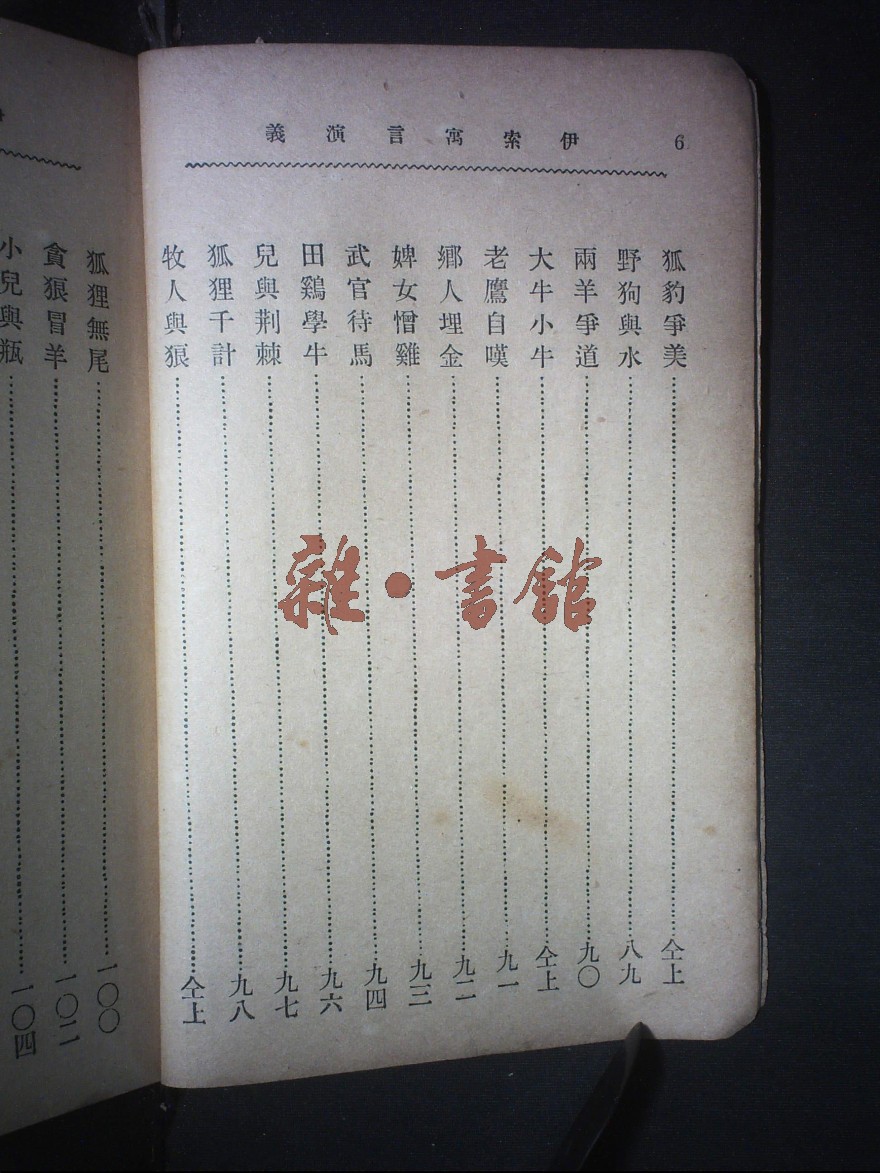 伊索寓言演義
6
狐豹爭美……仝上
野狗與水……八九
兩羊爭道……九〇
大牛小牛……仝上
老鷹自嘆……九一
鄉人埋金……九二
婢女憎雞……九三
武官待馬……九四
田鷄學牛……九六
兒與荆棘……九七
狐狸千計……九八
牧人與狼……仝上
狐狸無尾……一〇〇
貪狼冒羊……一〇二
小兒與瓶……一〇四
雜·書館